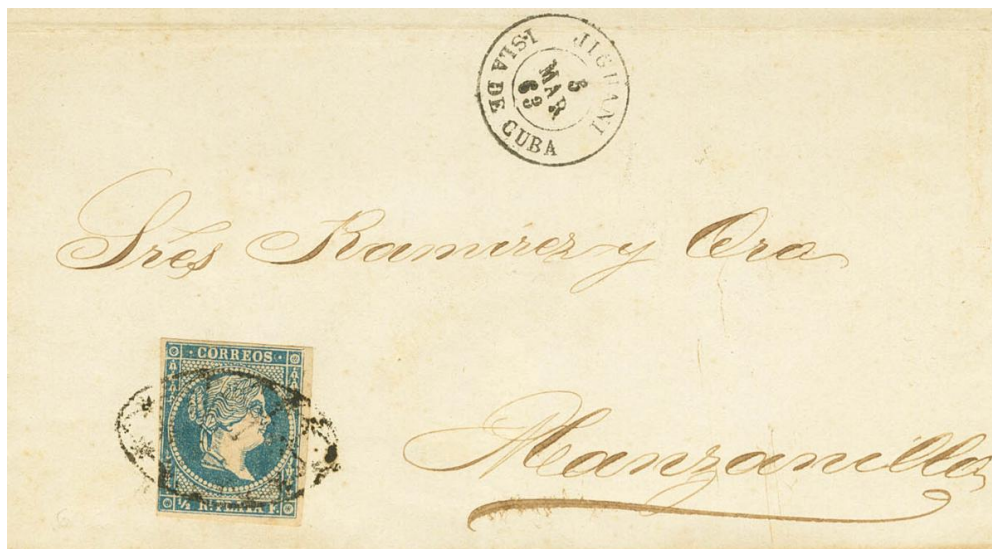 JIGUANI
5
MAR
63
ISLA DE CUBA
Sres Ramirez y Oro
CORREOS
½ R. PLATA F.
Manzanillo